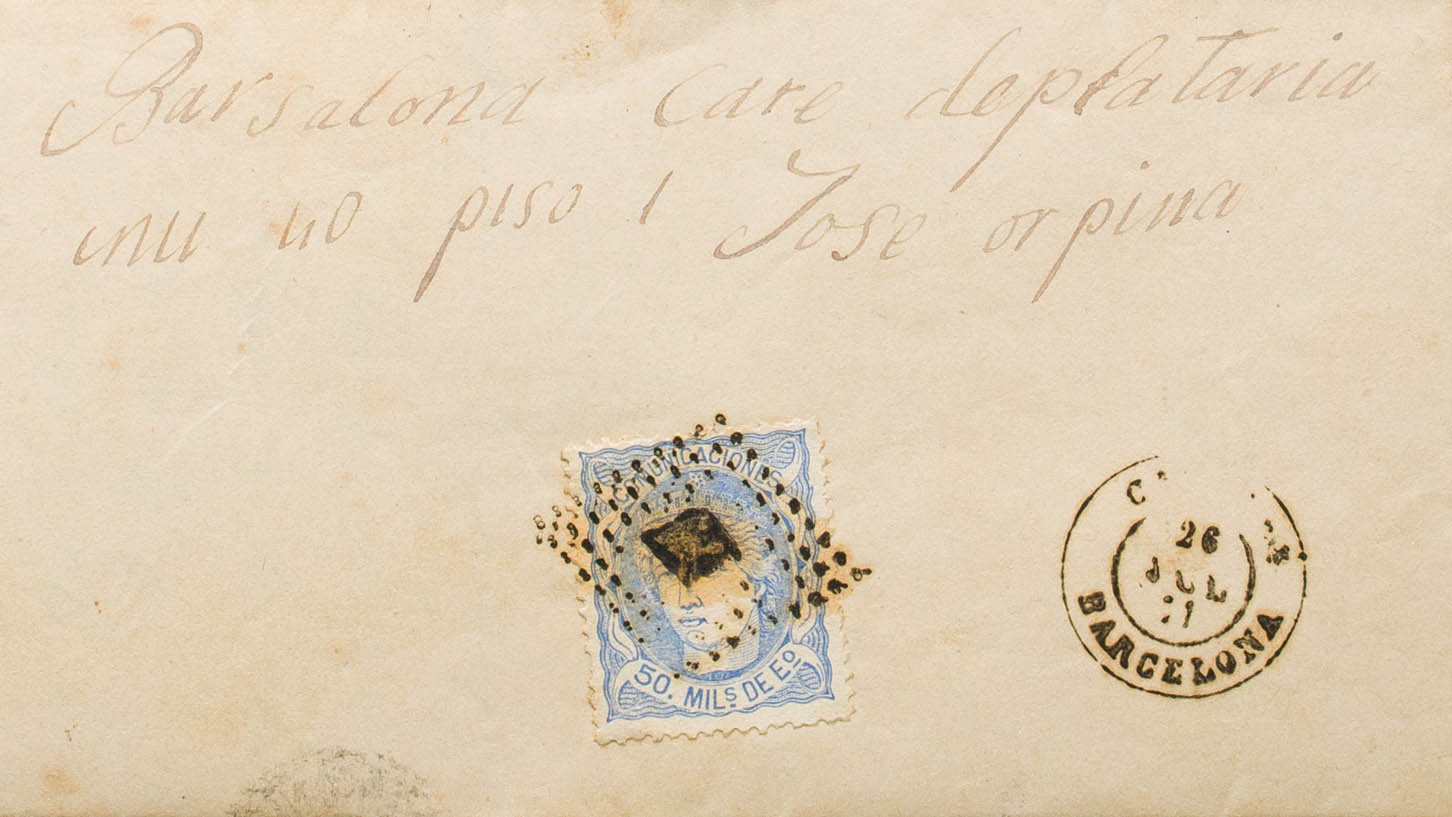 Barsalona Care deplataria
piso 1 Jose orpina
COMUNICACIONES
50. MILS DE Eº
26
JUL
71
BARCELONA